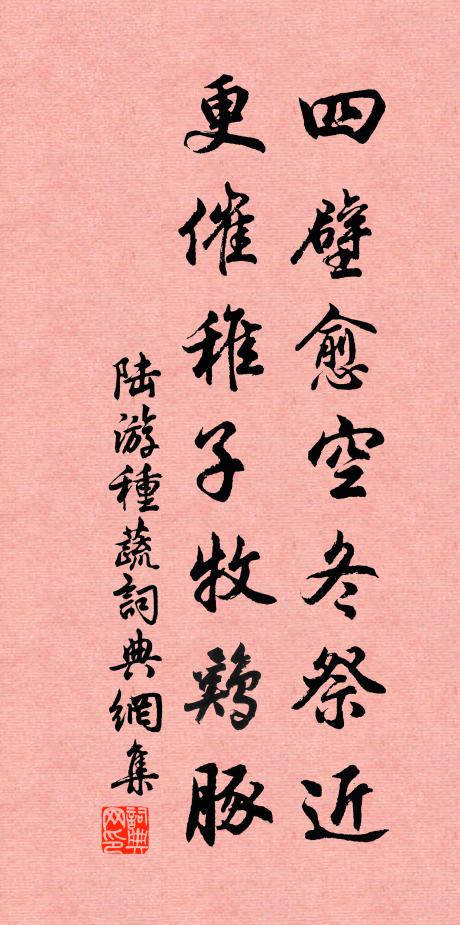 四壁愈空冬祭近
更催稚子牧鷄豚
陆游種蔬詞典網集
詞典
网印